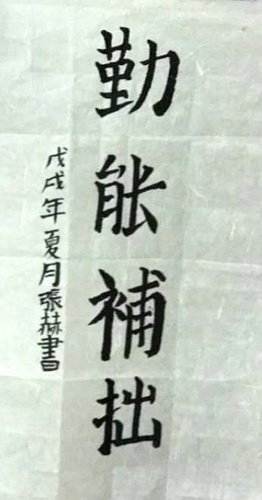 勤能補拙
戊戌年夏月張赫書